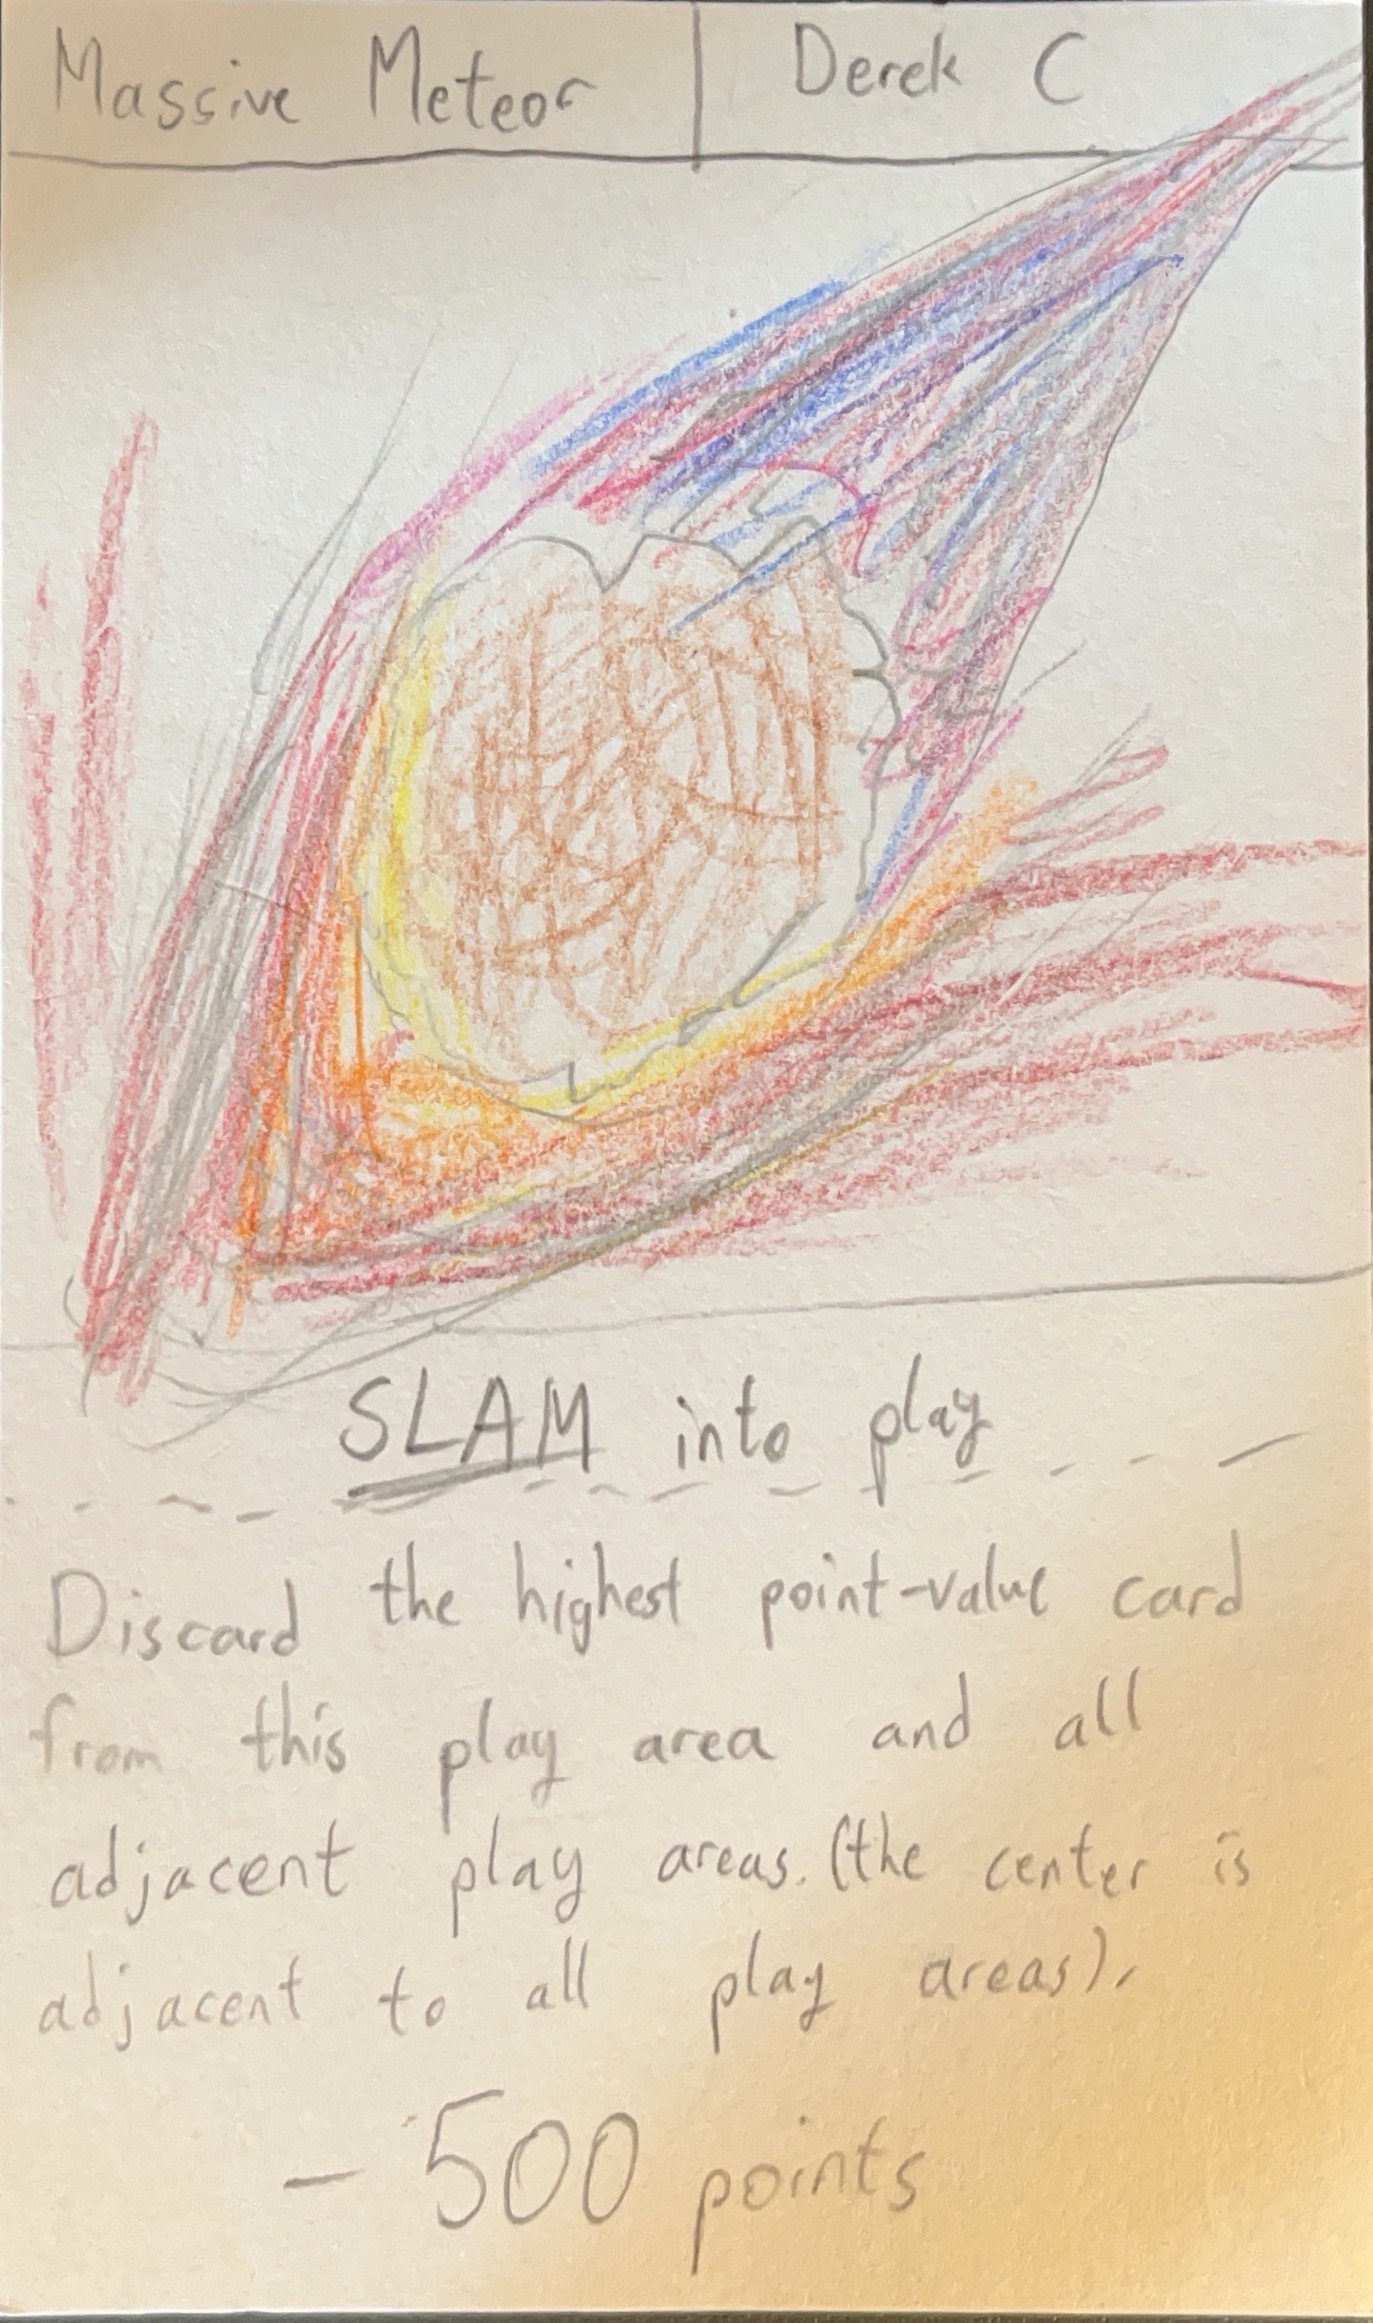 Massive Meteor | Derek C
SLAM into play
Discard the highest point-value card
from this play area and all
adjacent play areas. (the center is
adjacent to all play areas).
- 500 points